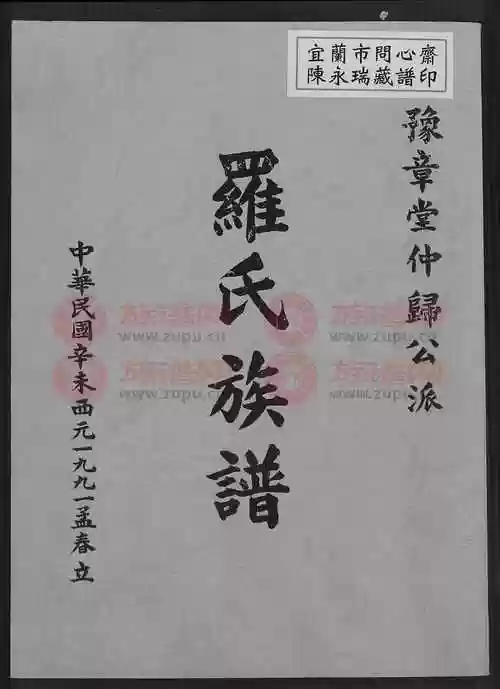 宜蘭市問心齋
陳永瑞藏譜印
豫章堂仲歸公派
羅氏族譜
中華民國辛未西元一九九一孟春立
www.zupu.cn
www.zupu.cn
www.zupu.cn
www.zupu.cn